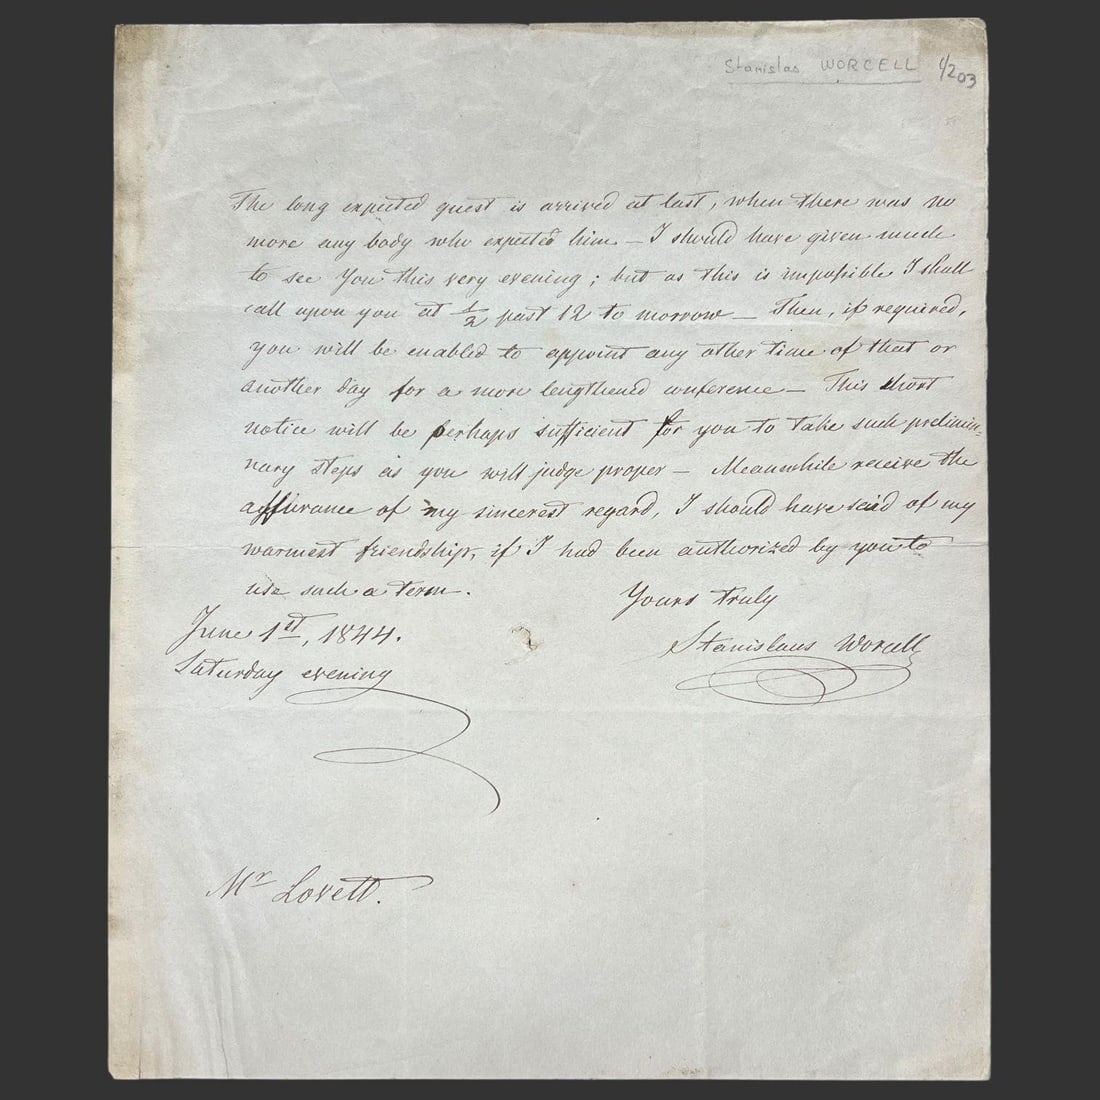 Stanislas WORCELL 1/203
The long expected guest is arrived at last, when there was no
more any body who expected him — I should have given much
to see You this very evening; but as this is impossible I shall
call upon you at 1/2 past 12 to morrow — Then, if required,
you will be enabled to appoint any other time of that or
another day for a more lengthened conference — This short
notice will be perhaps sufficient for you to take such prelimi=
nary steps as you will judge proper — Meanwhile receive the
assurance of my sincerest regard, I should have said of my
warmest friendship, if I had been authorized by you to
use such a term.
Yours truly
June 1st, 1844.
Stanislaus Worcell
Saturday evening
Mr Lovett.